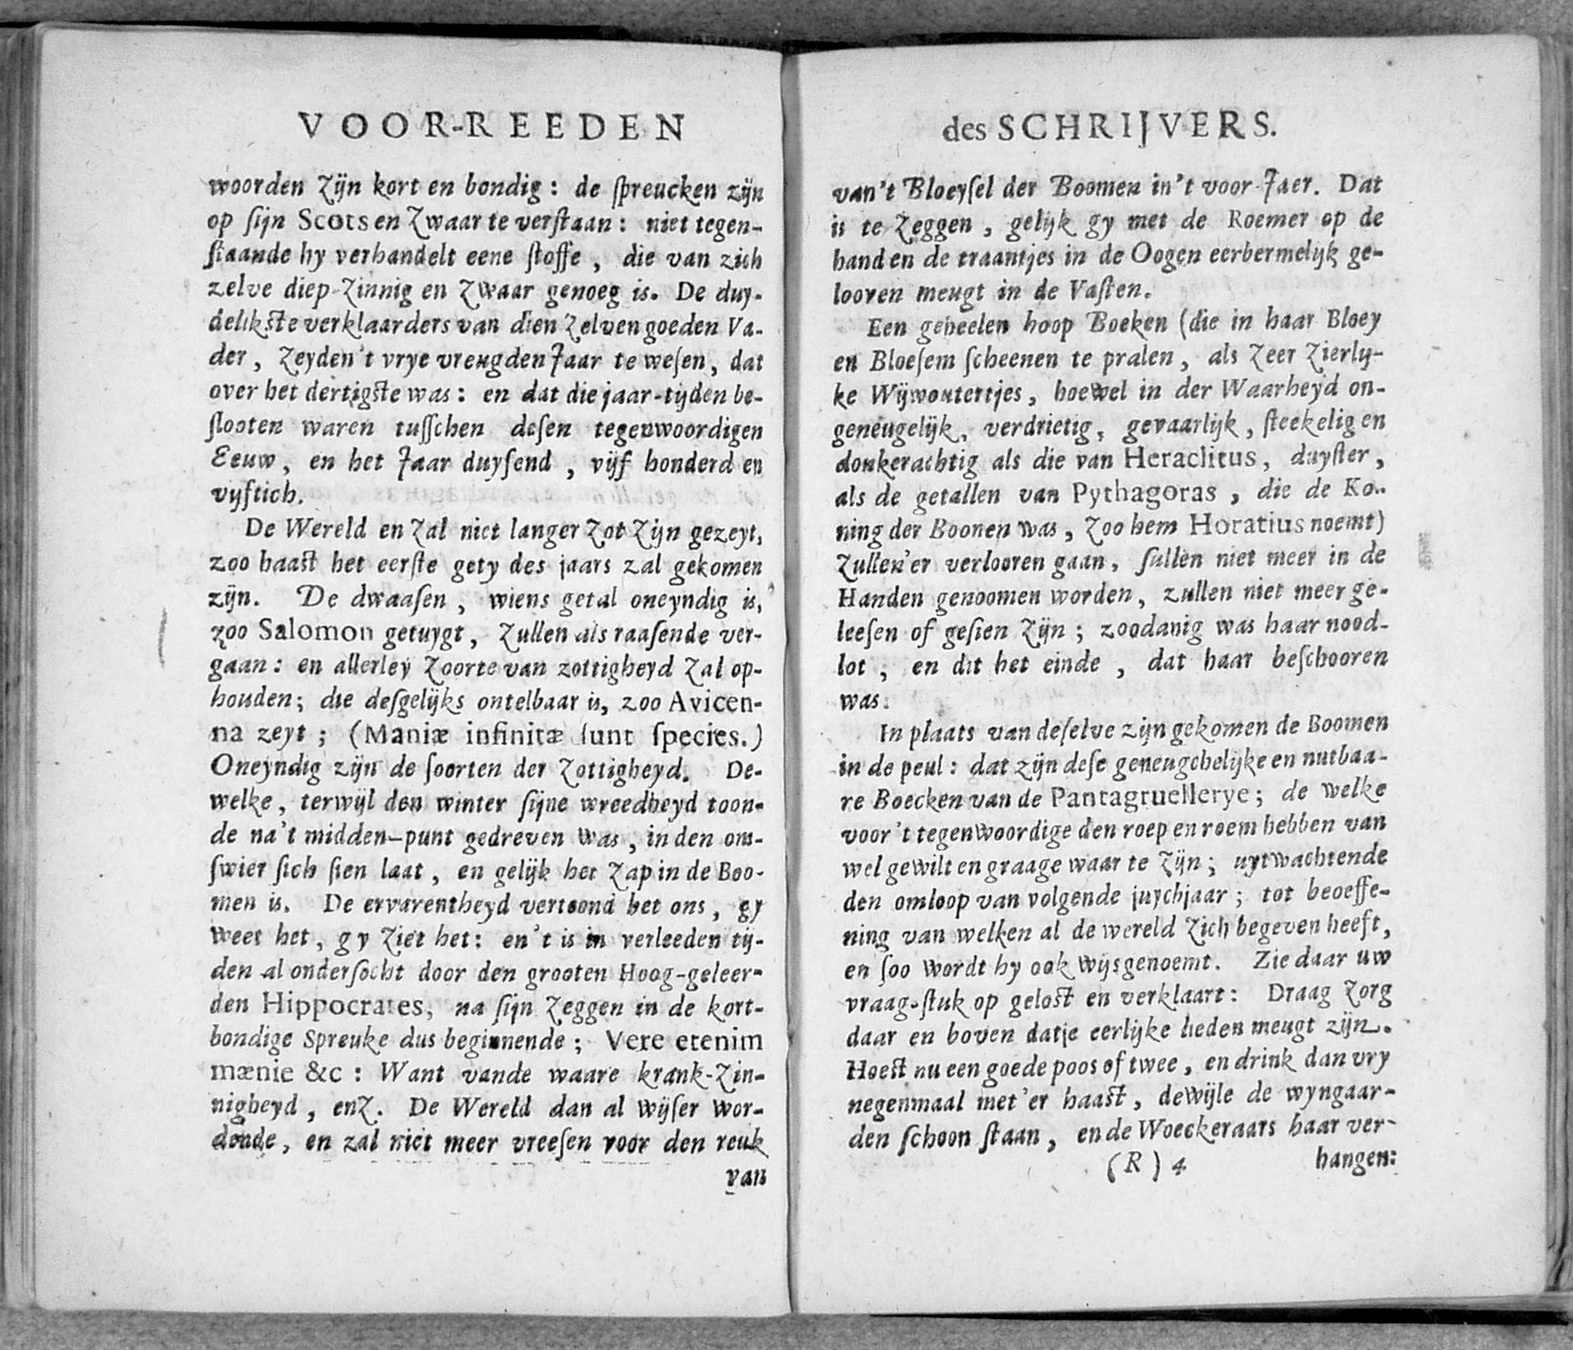 VOOR-REEDEN
woorden zijn kort en bondig: de spreucken zijn
op sijn Scots en zwaar te verstaan: niet tegen-
staande hy verhandelt eene stoffe, die van zich
zelve diep-zinnig en zwaar genoeg is. De duy-
delikste verklaarders van dien zelven goeden Va-
der, zeyden't vrye vreugden Jaar te wesen, dat
over het dertigste was: en dat die jaar-tijden be-
slooten waren tusschen desen tegenwoordigen
Eeuw, en het Jaar duysend, vijf honderd en
vijftich.
De Wereld en zal niet langer zot zijn gezeyt,
zoo haast het eerste gety des jaars zal gekomen
zijn. De dwaasen, wiens getal oneyndig is,
zoo Salomon getuygt, zullen als raasende ver-
gaan: en allerley zoorte van zottigheyd zal op-
houden; die desgelijks ontelbaar is, zoo Avicen-
na zeyt; (Maniæ infinitæ sunt species.)
Oneyndig zijn de soorten der zottigheyd. De-
welke, terwijl den winter sijne wreedheyd toon-
de na't midden-punt gedreven was, in den om-
swier sich sien laat, en gelijk het zap in de Boo-
men is. De ervarentheyd vertoond het ons, gy
weet het, gy ziet het: en't is in verleeden tij-
den al ondersocht door den grooten Hoog-geleer-
den Hippocrates, na sijn zeggen in de kort-
bondige Spreuke dus beginnende; Vere etenim
mænie &c: Want vande waare krank-zin-
nigheyd, enz. De Wereld dan al wijser wor-
dende, en zal niet meer vreesen voor den reuk
van
des SCHRIJVERS.
van't Bloeysel der Boomen in't voor-Jaer. Dat
is te zeggen, gelijk gy met de Roemer op de
hand en de traantjes in de Oogen eerbermelijk ge-
looven meugt in de Vasten.
Een geheelen hoop Boeken (die in haar Bloey
en Bloesem scheenen te pralen, als zeer zierly-
ke Wijwoutertjes, hoewel in der Waarheyd on-
geneugelijk, verdrietig, gevaarlijk, steekelig en
donkerachtig als die van Heraclitus, duyster,
als de getallen van Pythagoras, die de Ko-
ning der Boonen was, zoo hem Horatius noemt)
zullen'er verlooren gaan, sullen niet meer in de
Handen genoomen worden, zullen niet meer ge-
leesen of gesien zijn; zoodanig was haar nood-
lot, en dit het einde, dat haar beschooren
was.
In plaats van deselve zijn gekomen de Boomen
in de peul: dat zijn dese geneugchelijke en nutbaa-
re Boecken van de Pantagruellerye; de welke
voor't tegenwoordige den roep en roem hebben van
wel gewilt en graage waar te zijn; uytwachtende
den omloop van volgende juychjaar; tot beoeffe-
ning van welken al de wereld zich begeven heeft,
en soo wordt hy ook wijs genoemt. Zie daar uw
vraag-stuk op gelost en verklaart: Draag zorg
daar en boven datje eerlijke lieden meugt zijn.
Hoest nu een goede poos of twee, en drink dan vry
negenmaal met'er haast, dewijle de wyngaar-
den schoon staan, en de Woeckeraars haar ver-
(R) 4 hangen: